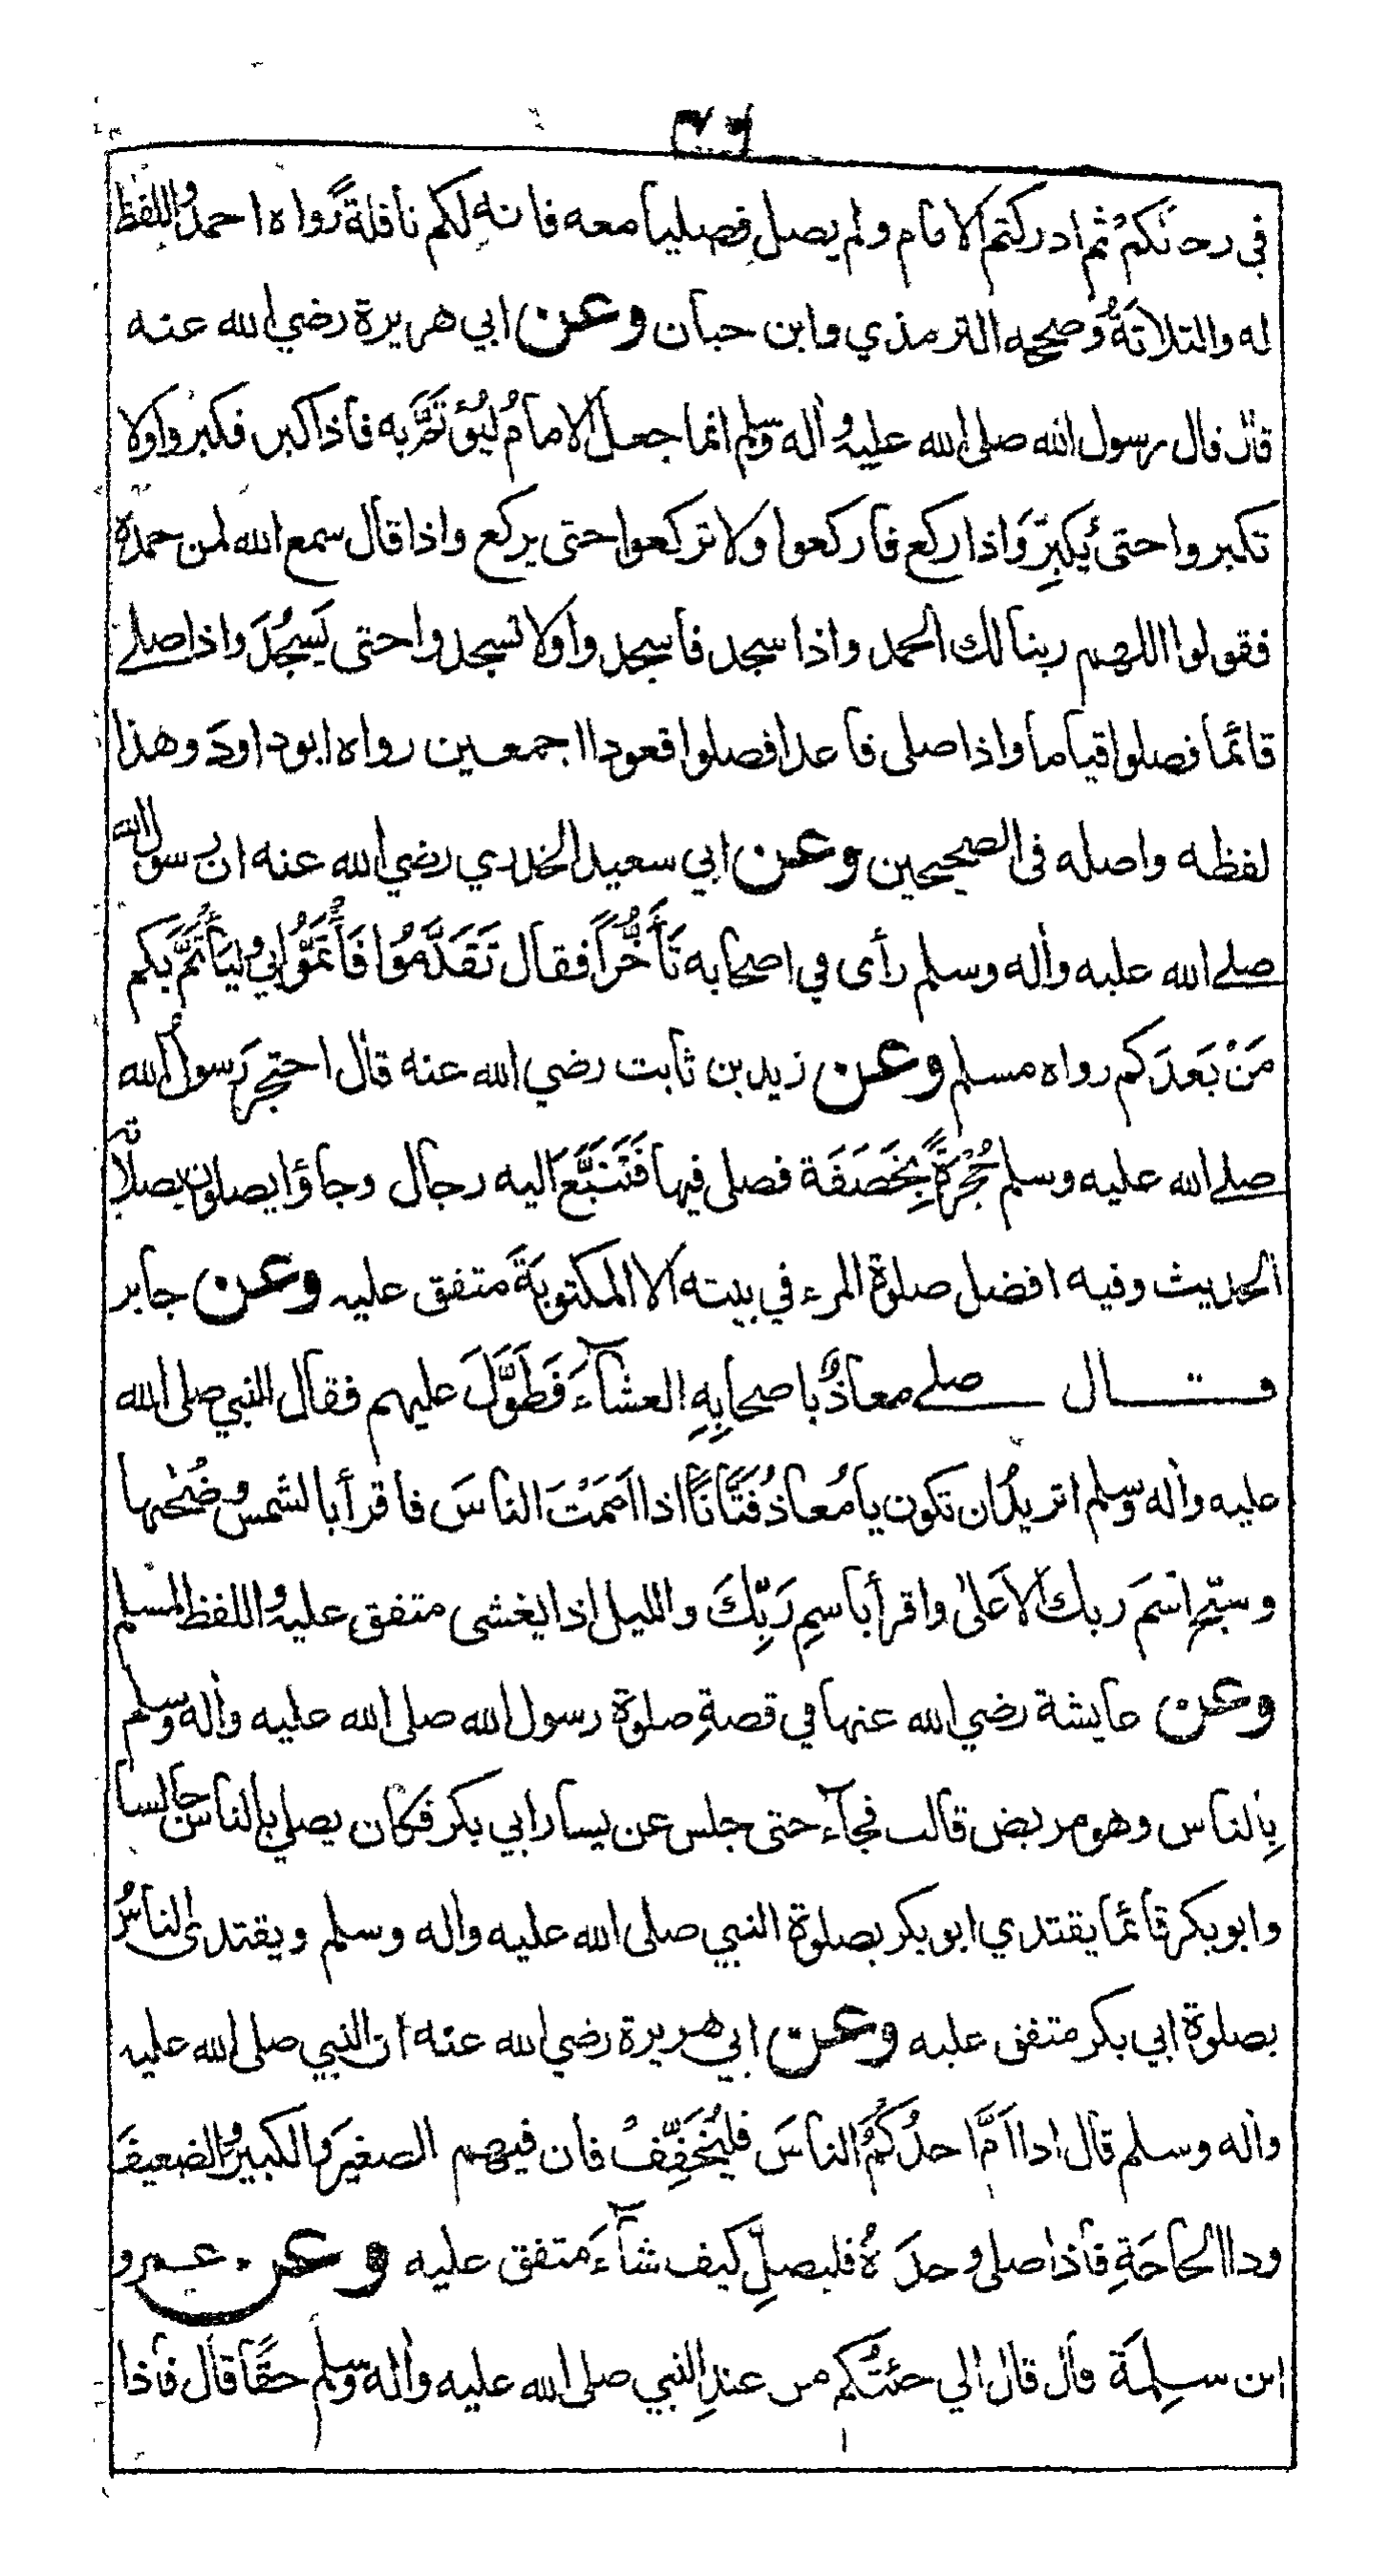 في رحالكم ثم ادركتم الامام ولم يصل فصليا معه فانه لكم نافلة رواه احمد واللفظ
له والثلاثة وصححه الترمذي وابن حبان وعن ابي هريرة رضي الله عنه
قال قال رسول الله صلى الله عليه واٰله وسلم انما جعل الامامُ ليُؤتَمَّ به فاذا كبر فكبروا ولا
تكبروا حتى يُكبِّرَ واذا ركع فاركعوا ولا تركعوا حتى يركع واذا قال سمع الله لمن حمده
فقولوا اللهم ربنا لك الحمد واذا سجد فاسجدوا ولا تسجدوا حتى يَسجُدَ واذا صلے
قائما فصلوا قياما واذا صلى قاعدا فصلوا قعودا اجمعين رواه ابوداود وهذا
لفظه واصله فى الصحيحين وعن ابي سعيد الخدري رضي الله عنه ان رسول الله
صلے الله عليه واٰله وسلم رأى في اصحابه تَأَخُّراً فقال تَقَدَّمُوا فَأْتَمُّوا بي وليَأْتَمَّ بكم
مَنْ بَعدَكم رواه مسلم وعن زيد بن ثابت رضي الله عنه قال احتجر رسولُ الله
صلے الله عليه وسلم حُجْرَةً بِخَصَفَة فصلى فيها فَتَتَبَّعَ اليه رجال وجاؤا يصلون بصلاته
الحديث وفيه افضل صلوة المرء في بيته الا المكتوبةَ متفق عليه وعن جابر
قال صلے معاذٌ باصحابِهِ العشآءَ فَطَوَّلَ عليهم فقال النبي صلى الله
عليه واٰله وسلم اتريدُ ان تكون يا مُعاذ فُتَّاناً اذا اَممَتْ الناسَ فاقرأ بالشمس وضُحٰيها
وسبّحِ اسمَ ربك الاَعلىٰ واقرأ باسمِ رَبِّكَ والليل اذا يغشى متفق عليه واللفظ لمسلم
وعن عايشة رضي الله عنها في قصةِ صلوة رسول الله صلى الله عليه واٰله وسلم
بِالناس وهو مريض قالت فجآء حتى جلس عن يسار ابي بكر فكان يصلي بالناس جالسا
وابوبكر قائما يقتدي ابو بكر بصلوة النبي صلى الله عليه واله وسلم ويقتدى الناسُ
بصلوة ابي بكر متفق عليه وعن ابي هريرة رضي الله عنه ان النبي صلى الله عليه
واٰله وسلم قال اذا اَمَّ احدُكُمُ الناسَ فليُخَفِّفْ فان فيهم الصغيرَ والكبيرَ والضعيفَ
وذا الحاجَةِ فاذا صلى وحدَهُ فليصلِّ كيف شآءَ متفق عليه وعن عمرو
ابن سلِمَة قال قال ابي جئتُكم من عندِ النبي صلى الله عليه واٰله وسلم حقًّا قال فاذا